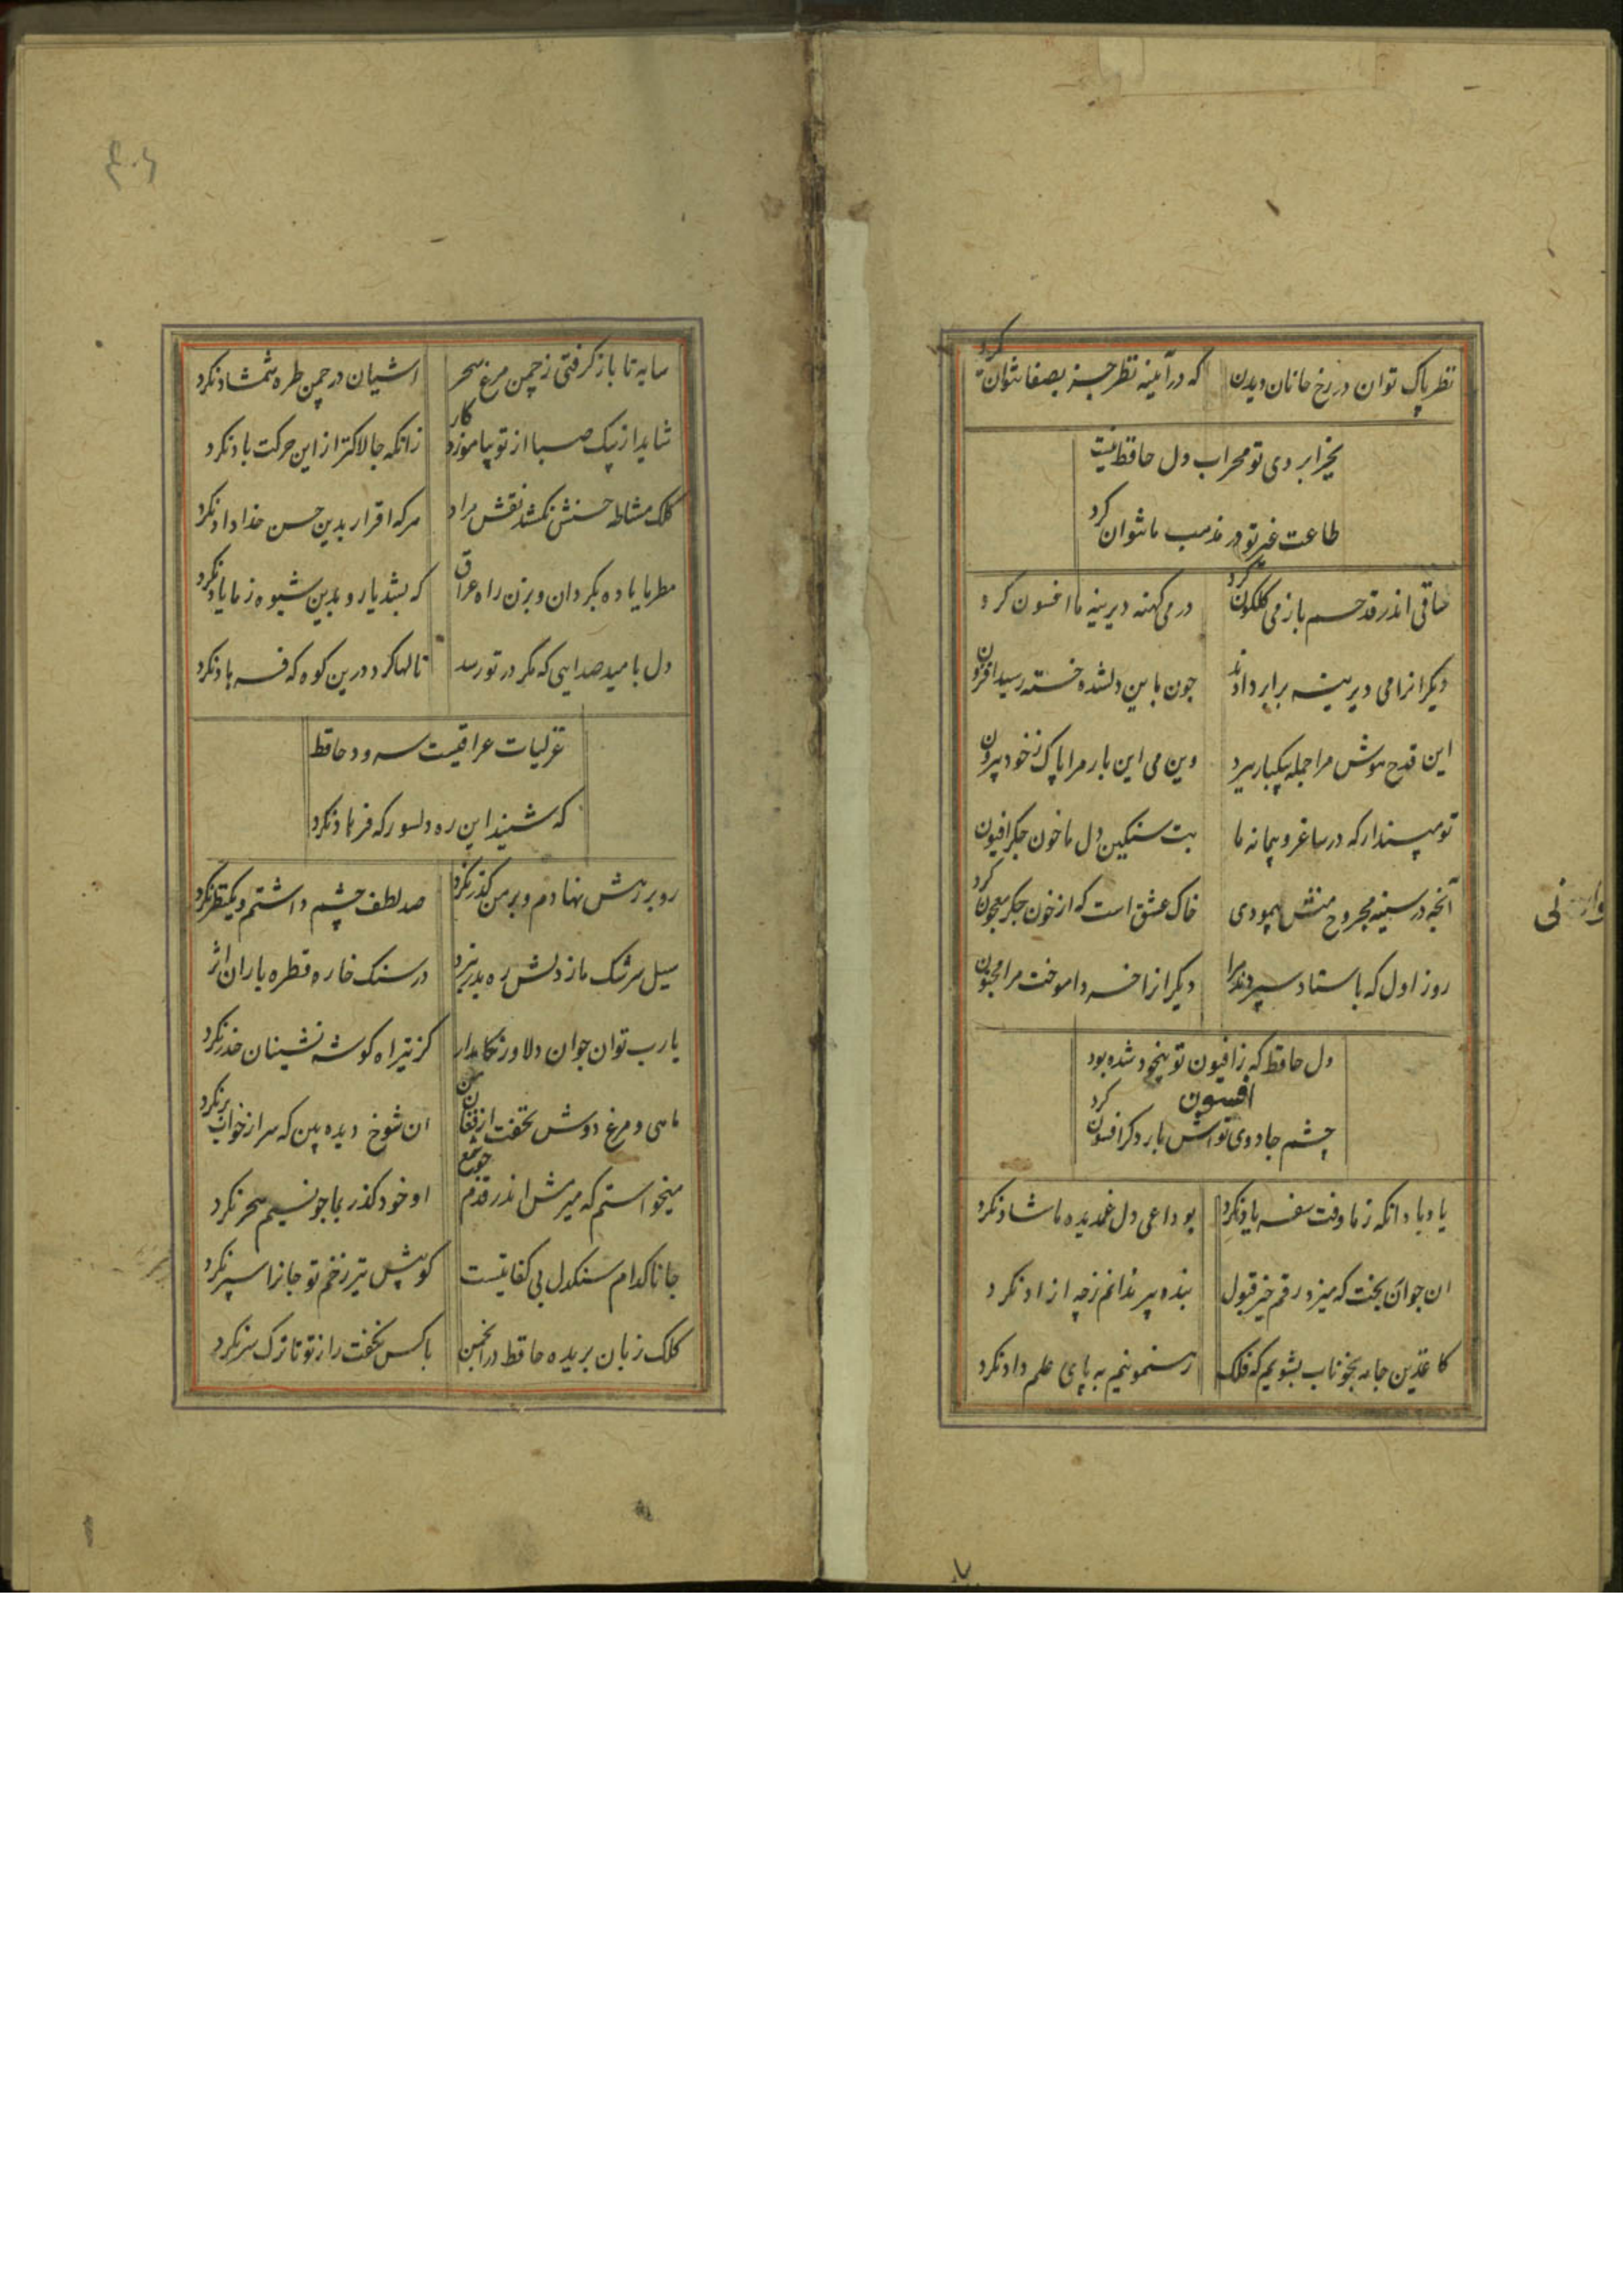 نظر پاک توان در رخ جانان دیدن که در آئینه نظر جز بصفا نتوان کرد
بجز ابروی تو محراب دل حافظ نیست
طاعت غیر تو در مذهب ما نتوان کرد
ساقی اندر قدحم باز می گلگون کرد در می کهنه دیرینه ما افسون کرد
دیگرانرا می دیرینه برابر دادند چون باین دلشده خسته رسید افزون
این قدح هوش مرا جمله بیکبار ببرد وین می این بار مرا پاک ز خود بیرون
تو مپندار که در ساغر و پیمانه ما بت سنگین دل ما خون جگر افیون
آنچه در سینه مجروح منش پیمودی خاک عشق است که از خون جگر معجون کرد
روز اول که باستاد سپردند مرا دیگرانرا خرد اموخت مرا مجنون
دل حافظ که ز افیون تو بیخود شده بود
افسون
چشم جادوی تواش بار دگر افسون کرد
یاد باد انکه ز ما وقت سفر یاد نکرد بوداعی دل غمدیده ما شاد نکرد
ان جوان بخت که میزد رقم خیر قبول بنده پیر ندانم ز چه ازاد نکرد
کاغذین جامه بخوناب بشویم که فلک رهنمونیم به پای علم داد نکرد
وارنی
۴۰۶
سایه تا باز گرفتی ز چمن مرغ سحر اشیان در چمن طره شمشاد نکرد
شاید از پیک صبا از تو بیاموزد کار زانکه چالاکتر از این حرکت باد نکرد
کلک مشاطه حسنش نکشد نقش مراد هر که اقرار بدین حسن خداداد نکرد
مطربا یاده بگردان و بزن راه عراق که بشد یار و بدین شیوه ز ما یاد نکرد
دل بامید صدایی که مگر در تو رسد نالها کرد درین کوه که فرهاد نکرد
غزلیات عراقیست سرود حافظ
که شنید این ره دلسوز که فریاد نکرد
رو بر رهش نهادم و بر من گذر نکرد صد لطف چشم داشتم و یکنظر نکرد
سیل سرشک ما ز دلش ره بدر نبرد در سنک خاره قطره باران اثر
یا رب تو ان جوان دلاور نگاهدار کز تیر اه گوشه نشینان حذر نکرد
ماهی و مرغ دوش نخفت از فغان من ان شوخ دیده بین که سر از خواب بر نکرد
میخواستم که میرمش اندر قدم چو شمع او خود گذر بما چو نسیم سحر نکرد
جانا کدام سنگدل بی کفایتست کو پیش تیر زخم تو جانرا سپر نکرد
کلک زبان بریده حافظ در انجمن با کس نگفت راز تو تا ترک سر نکرد